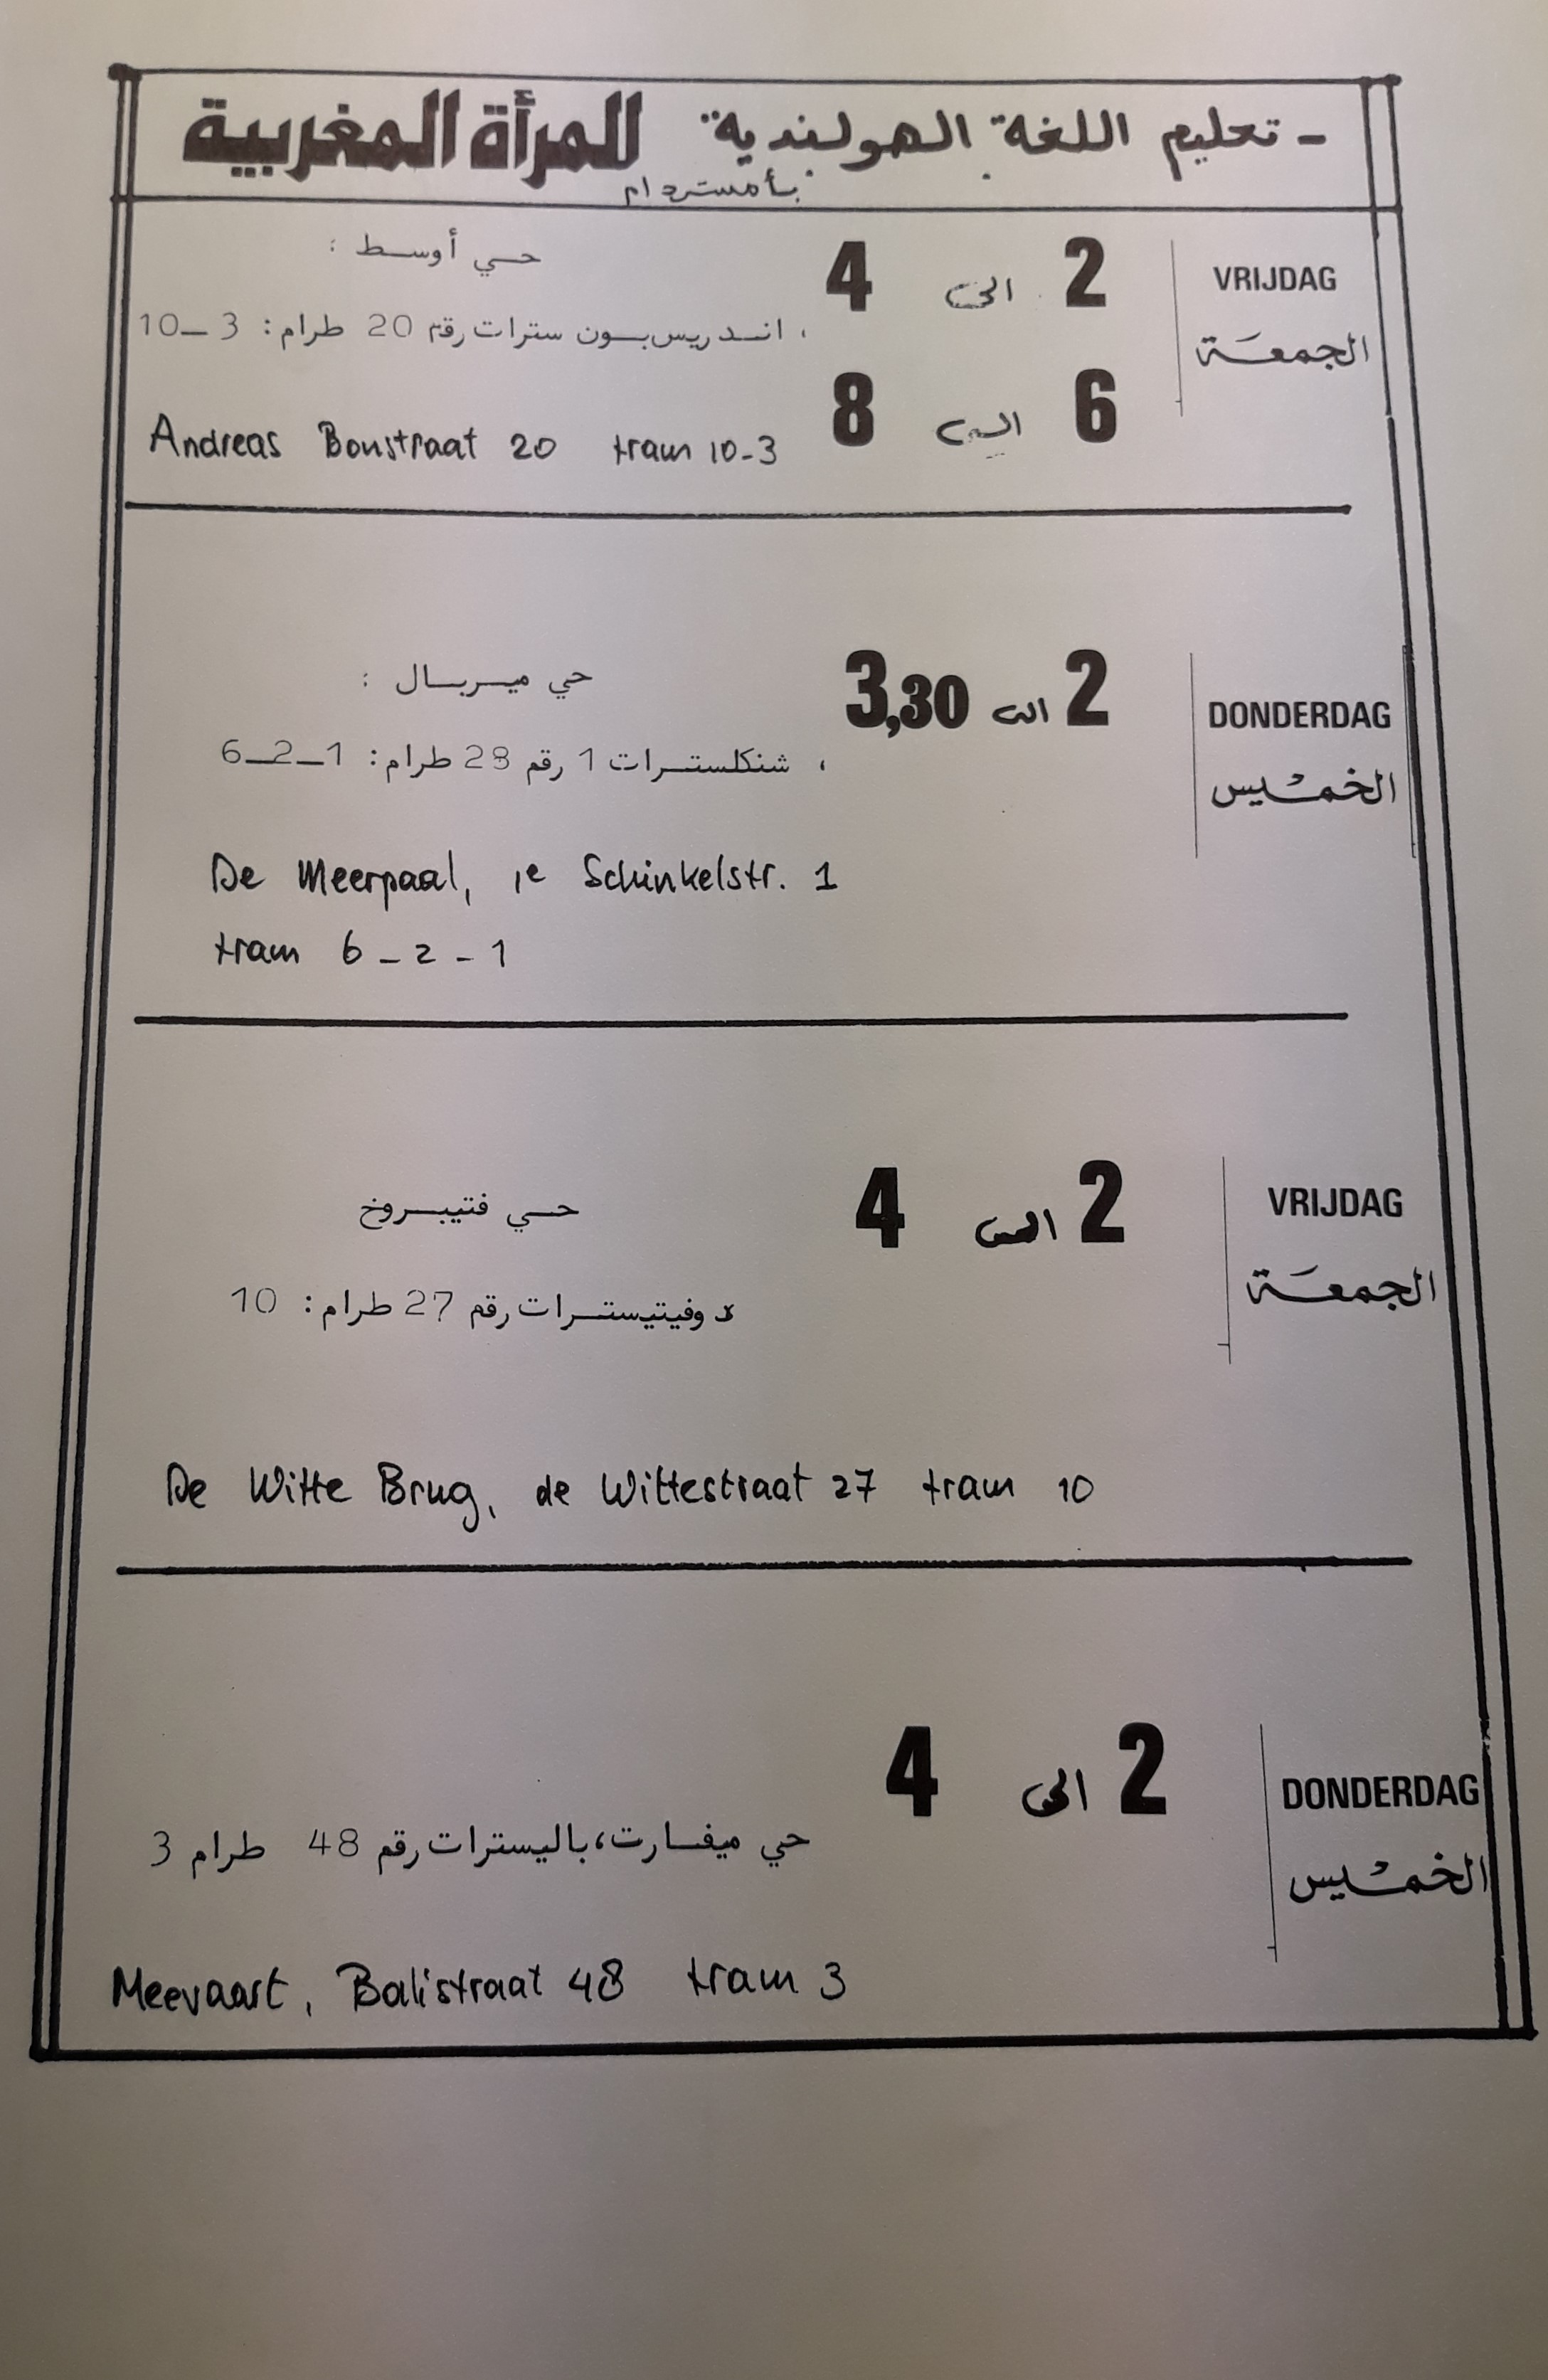 - تعليم اللغة الهولندية للمرأة المغربية
بأمستردام
VRIJDAG
الجمعة
2 الى 4
6 الى 8
حي أوسط :
، اندريس بون سترات رقم 20 طرام: 3_10
Andreas Bonstraat 20 tram 10-3
DONDERDAG
الخميس
2 الى 3,30
حي ميربال :
، شنكلسترات 1 رقم 28 طرام: 1_2_6
De Meerpaal, 1e Schinkelstr. 1
tram 6 - 2 - 1
VRIJDAG
الجمعة
2 الى 4
حي فتيبروخ
د وفيتيسترات رقم 27 طرام: 10
De Witte Brug, de Wittestraat 27 tram 10
DONDERDAG
الخميس
2 الى 4
حي ميفارت، باليسترات رقم 48 طرام 3
Meevaart, Balistraat 48 tram 3